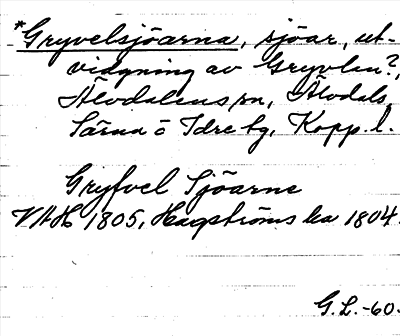 *Gryvelsjöarna, sjöar, ut-
vidgning av Gryvlen?,
Älvdalens sn, Älvdals,
Särna o Idre tg, Kopp. l.
Gryfvel Sjöarne
VAH 1805, Hagströms ka 1804.
G.L.-60.